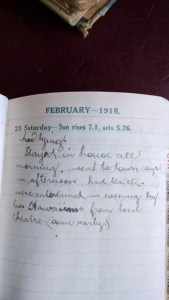 FEBRUARY—1918.
23 Saturday—Sun rises 7.1, sets 5.26.
had
Stayed in house all
morning. went to town
in afternoon, had
were entertained in evening by
two Hawaiians from local
theatre (some party)